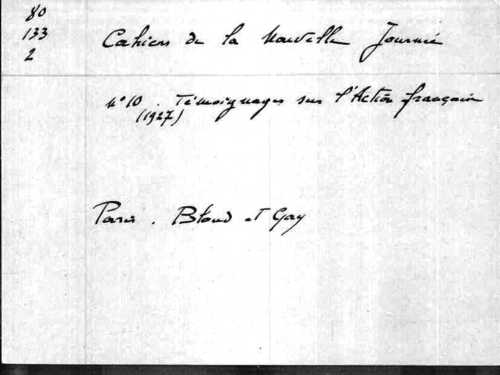 80
133
2
Cahiers de la Nouvelle Journée
n° 10. Témoignages sur l'Action française
(1927)
Paris. Bloud et Gay